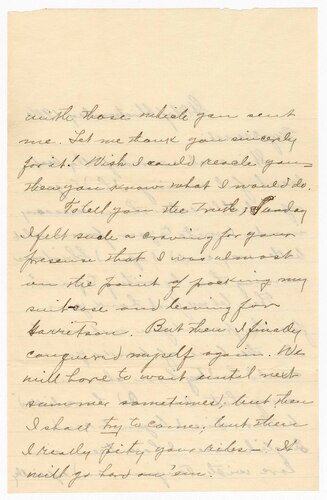 with those which you sent
me. Let me thank you sincerely
for it! Wish I could reach you—
then you know what I would do.
To tell you the truth, Sunday
I felt such a craving for your
presence that I was almost
on the point of packing my
suitcase and leaving for
Garritson. But then I finally
conquered myself again. We
will have to wait until next
summer sometimes, but then
I shall try to come, but then
I really pity your ribs! It
will go hard on 'em!